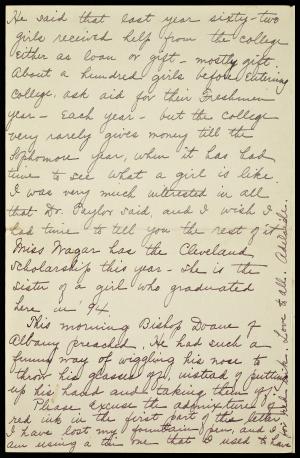 He said that last year sixty-two
girls received help from the college
either as loan or gift - mostly gift.
About a hundred girls before entering
College, ask aid for their Freshmen
year - Each year - but the College
very rarely gives money till the
Sophomore year, when it has had
time to see what a girl is like.
I was very much interested in all
that Dr. Taylor said, and I wish I
had time to tell you the rest of it.
Miss Wagar has the Cleveland
Scholarship this year - she is the
sister of a girl who graduated
here in '94
This morning Bishop Doane of
Albany preached. He had such a
funny way of wiggling his nose to
throw his glasses off, instead of putting
up his hand and taking them off.
Please excuse the admixture of
red ink in the first part of this letter
I have lost my fountain pen, and I
am using a one that I used to have
for red ink. Love to all. Adelaide.